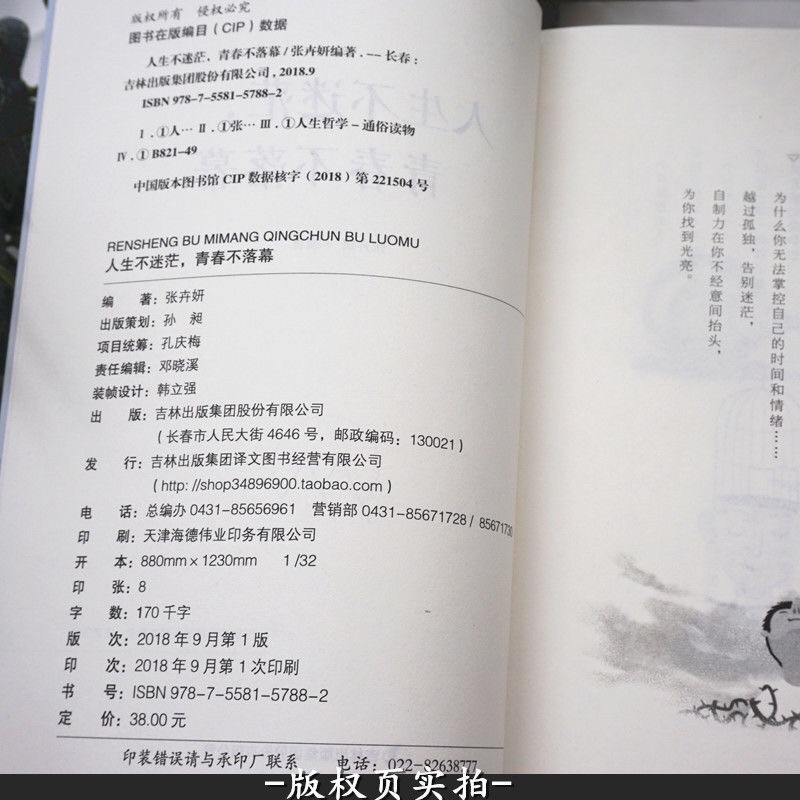 版权所有　侵权必究
图书在版编目（CIP）数据
人生不迷茫，青春不落幕/张卉妍编著．--长春：
吉林出版集团股份有限公司，2018.9
ISBN 978-7-5581-5788-2
Ⅰ．①人… Ⅱ．①张… Ⅲ．①人生哲学－通俗读物
Ⅳ．① B821-49
中国版本图书馆 CIP 数据核字（2018）第 221504 号
RENSHENG BU MIMANG QINGCHUN BU LUOMU
人生不迷茫，青春不落幕
编　　著：张卉妍
出版策划：孙　昶
项目统筹：孔庆梅
责任编辑：邓晓溪
装帧设计：韩立强
出　　版：吉林出版集团股份有限公司
（长春市人民大街 4646 号，邮政编码：130021）
发　　行：吉林出版集团译文图书经营有限公司
（http: //shop34896900.taobao.com）
电　　话：总编办 0431-85656961　营销部 0431-85671728 / 85671730
印　　刷：天津海德伟业印务有限公司
开　　本：880mm×1230mm　1 /32
印　　张：8
字　　数：170 千字
版　　次：2018 年 9 月第 1 版
印　　次：2018 年 9 月第 1 次印刷
书　　号：ISBN 978-7-5581-5788-2
定　　价：38.00 元
印装错误请与承印厂联系　　电话：022-82638777
为什么你无法掌控自己的时间和情绪……
越过孤独，告别迷茫，
自制力在你不经意间抬头，
为你找到光亮。
-版权页实拍-